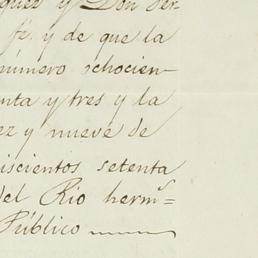 guez y Don Fer
fé, y de que la
número ochocien-
enta y tres y la
ez y nueve de
iscientos setenta
del Rio herms=
Público